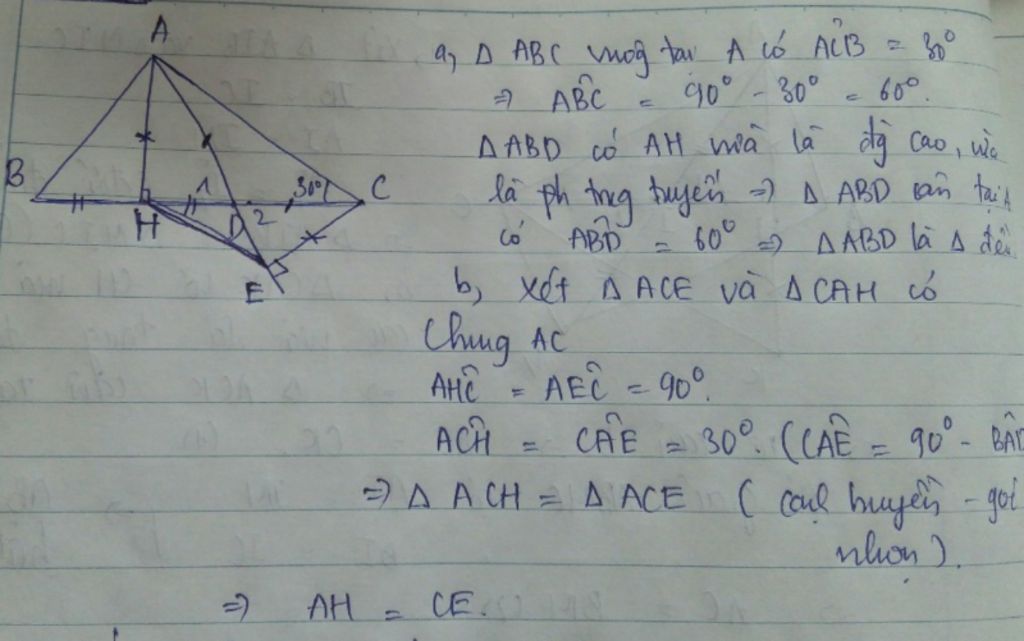 A
B
H
1
D
2
30°
C
E
a, Δ ABC vuog tại A có ACB̂ = 30°
⇒ ABĈ = 90° - 30° = 60°.
ΔABD có AH vừa là đg cao, vừa
là ph trug tuyến ⇒ Δ ABD cân tại A
có ABD̂ = 60° ⇒ ΔABD là Δ đều
b, xét Δ ACE và Δ CAH có
Chung AC
AHĈ = AEĈ = 90°.
ACĤ = CAÊ = 30°. (CAÊ = 90° - BAD
⇒ Δ ACH = Δ ACE ( cạnh huyền - góc
nhọn ).
⇒ AH = CE.